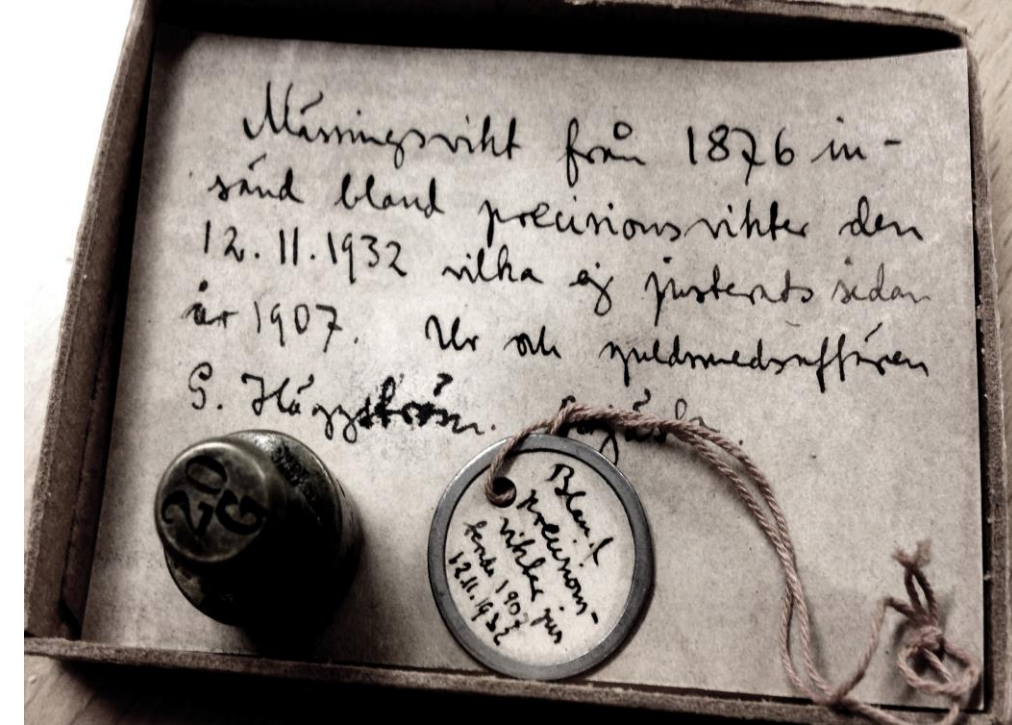 Mässingsvikt från 1876 in-
sänd bland precisionsvikter den
12.11.1932 vilka ej justerats sedan
år 1907. Ur och guldsmedsaffären
G. Häggström.
20
G
Bland
precisions-
vikter jus
terade 1907
12.11.1932